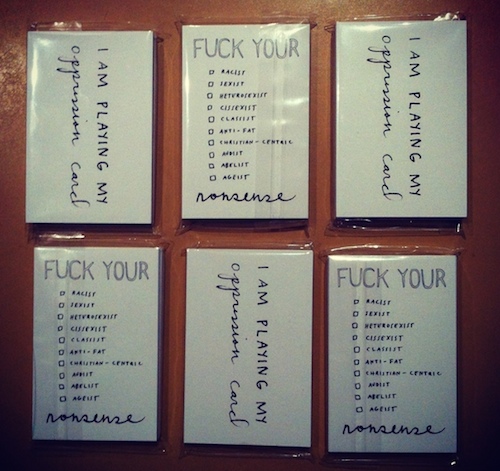 I AM PLAYING MY
oppression card
FUCK YOUR
RACIST
SEXIST
HETEROSEXIST
CISSEXIST
CLASSIST
ANTI-FAT
CHRISTIAN-CENTRIC
AUDIST
ABELIST
AGEIST
nonsense
I AM PLAYING MY
oppression card
FUCK YOUR
RACIST
SEXIST
HETEROSEXIST
CISSEXIST
CLASSIST
ANTI-FAT
CHRISTIAN-CENTRIC
AUDIST
ABELIST
AGEIST
nonsense
I AM PLAYING MY
oppression card
FUCK YOUR
RACIST
SEXIST
HETEROSEXIST
CISSEXIST
CLASSIST
ANTI-FAT
CHRISTIAN-CENTRIC
AUDIST
ABELIST
AGEIST
nonsense